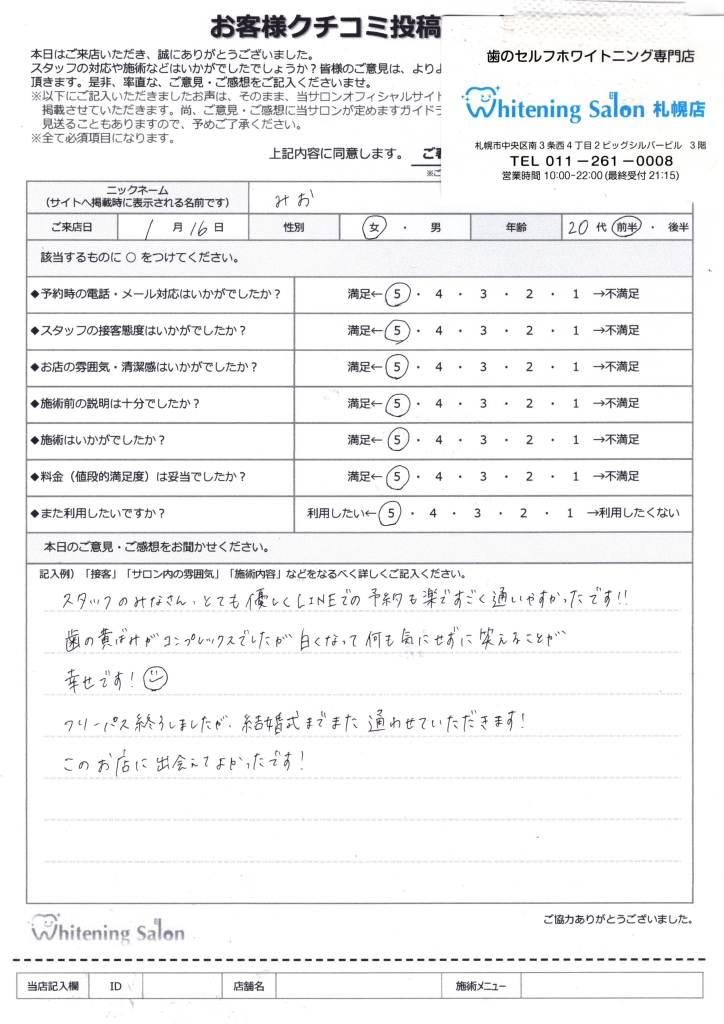 お客様クチコミ投稿
本日はご来店いただき、誠にありがとうございました。
スタッフの対応や施術などはいかがでしたでしょうか？皆様のご意見は、よりよ
頂きます。是非、率直な、ご意見・ご感想をご記入くださいませ。
※以下にご記入いただきましたお声は、そのまま、当サロンオフィシャルサイト
掲載させていただきます。尚、ご意見・ご感想に当サロンが定めますガイドラ
見送ることもありますので、予めご了承ください。
※全て必須項目になります。
上記内容に同意します。
歯のセルフホワイトニング専門店
Whitening Salon 札幌店
札幌市中央区南3条西4丁目2ビッグシルバービル 3階
TEL 011－261－0008
営業時間 10:00-22:00(最終受付 21:15)
ニックネーム
（サイトへ掲載時に表示される名前です） みお
ご来店日 1 月 16 日 性別 女 ・ 男 年齢 20 代 前半 ・ 後半
該当するものに ○ をつけてください。
◆予約時の電話・メール対応はいかがでしたか？ 満足← 5 ・ 4 ・ 3 ・ 2 ・ 1 →不満足
◆スタッフの接客態度はいかがでしたか？ 満足← 5 ・ 4 ・ 3 ・ 2 ・ 1 →不満足
◆お店の雰囲気・清潔感はいかがでしたか？ 満足← 5 ・ 4 ・ 3 ・ 2 ・ 1 →不満足
◆施術前の説明は十分でしたか？ 満足← 5 ・ 4 ・ 3 ・ 2 ・ 1 →不満足
◆施術はいかがでしたか？ 満足← 5 ・ 4 ・ 3 ・ 2 ・ 1 →不満足
◆料金（値段的満足度）は妥当でしたか？ 満足← 5 ・ 4 ・ 3 ・ 2 ・ 1 →不満足
◆また利用したいですか？ 利用したい← 5 ・ 4 ・ 3 ・ 2 ・ 1 →利用したくない
本日のご意見・ご感想をお聞かせください。
記入例）「接客」「サロン内の雰囲気」「施術内容」などをなるべく詳しくご記入ください。
スタッフのみなさん、とても優しくLINEでの予約も楽ですごく通いやすかったです!!
歯の黄ばみがコンプレックスでしたが白くなって何も気にせずに笑えることが
幸せです！
フリーパス終了しましたが、結婚式までまた通わせていただきます！
このお店に出会えてよかったです！
Whitening Salon
ご協力ありがとうございました。
当店記入欄 ID 店舗名 施術メニュー